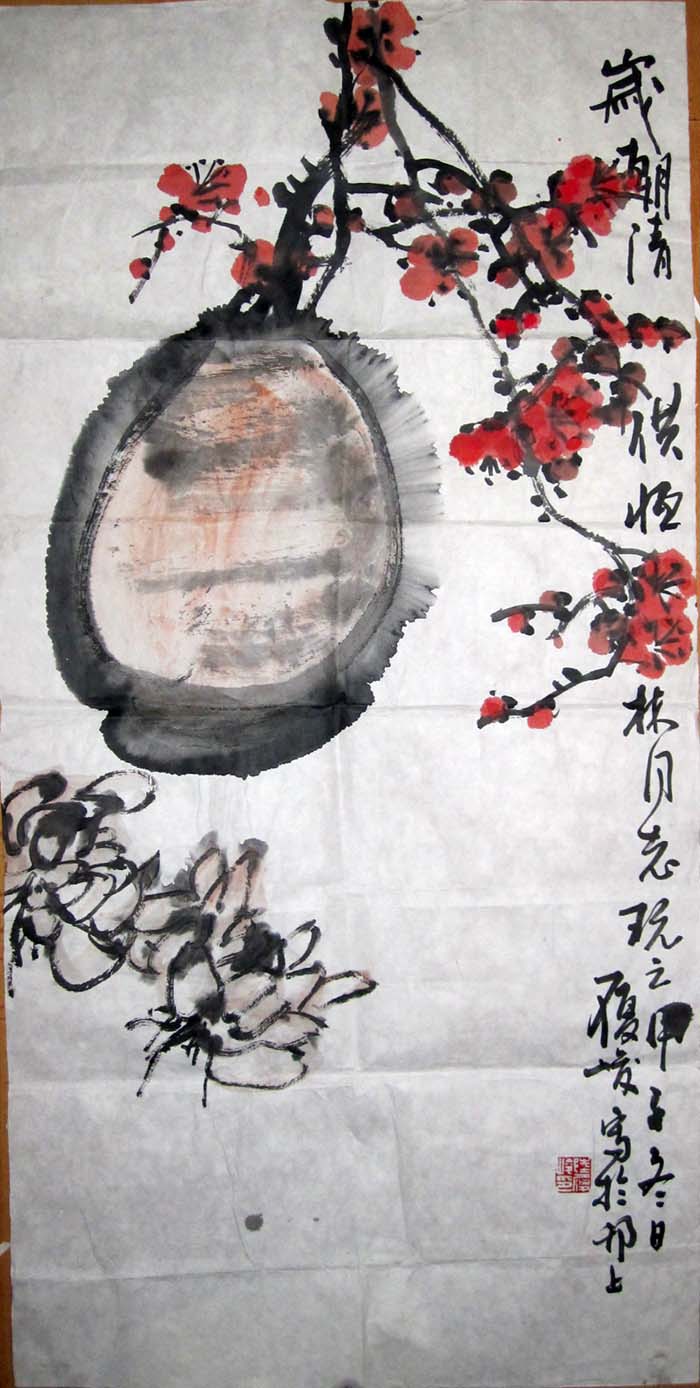 歲朝清供恒林同志玩之甲子冬日
履峻寫於邗上